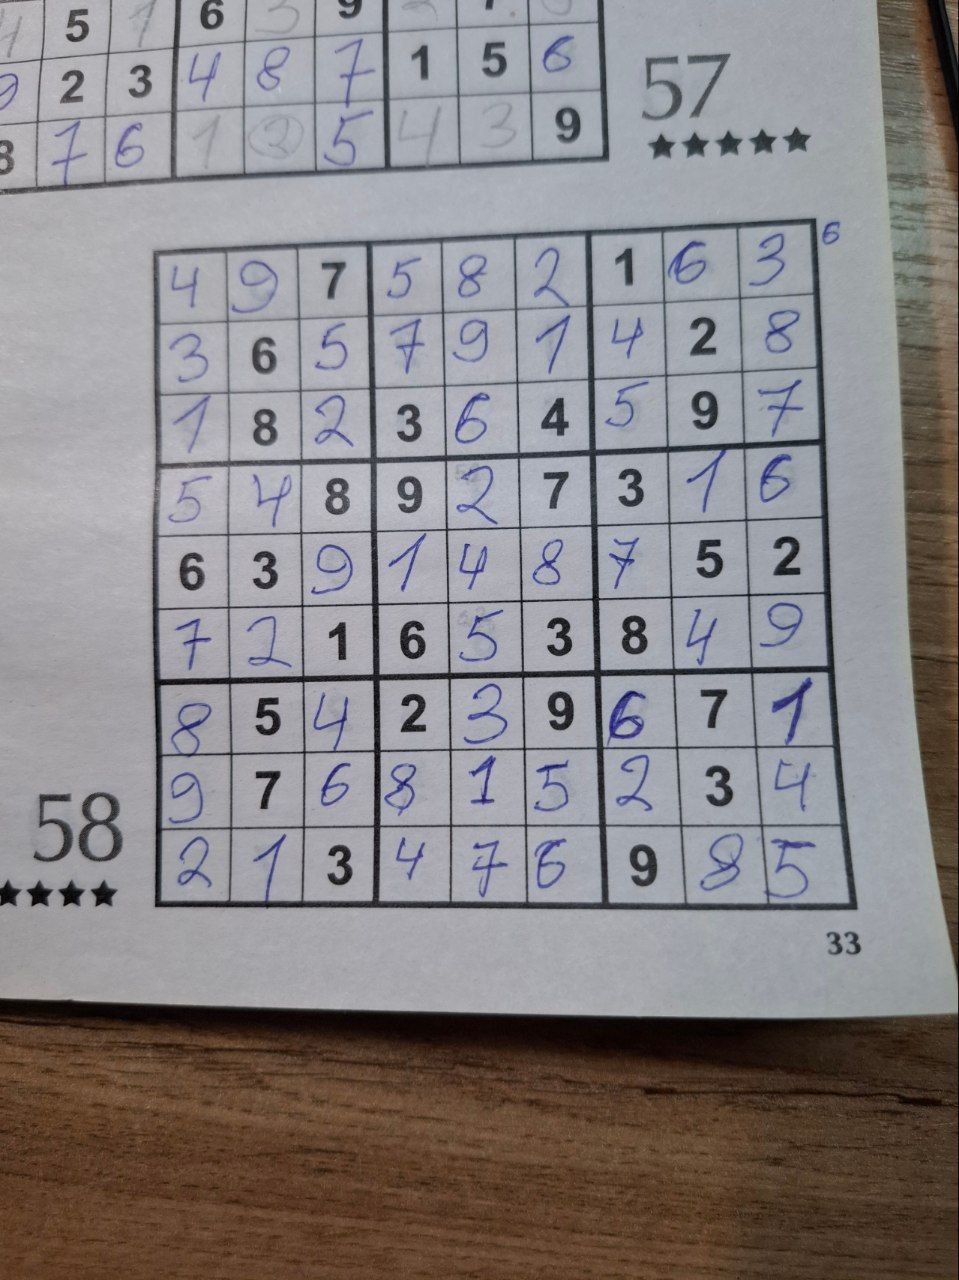 5 1 6 3 9
2 3 4 8 7 1 5 6
57
8 7 6 1 2 5 4 3 9
★★★★★
6
4 9 7 5 8 2 1 6 3
3 6 5 7 9 1 4 2 8
1 8 2 3 6 4 5 9 7
5 4 8 9 2 7 3 1 6
6 3 9 1 4 8 7 5 2
7 2 1 6 5 3 8 4 9
8 5 4 2 3 9 6 7 1
9 7 6 8 1 5 2 3 4
58
2 1 3 4 7 6 9 8 5
★★★★
33